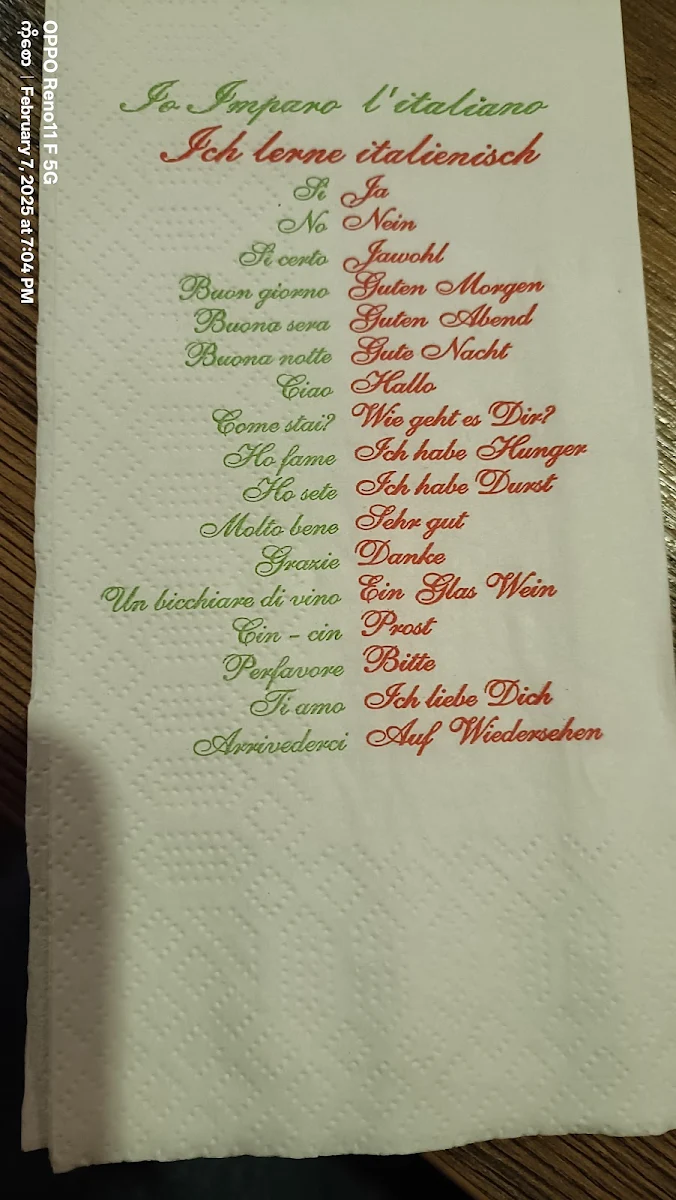 Io Imparo l'italiano
Ich lerne italienisch
Si Ja
No Nein
Si certo Jawohl
Buon giorno Guten Morgen
Buona sera Guten Abend
Buona notte Gute Nacht
Ciao Hallo
Come stai? Wie geht es Dir?
Ho fame Ich habe Hunger
Ho sete Ich habe Durst
Molto bene Sehr gut
Grazie Danke
Un bicchiare di vino Ein Glas Wein
Cin - cin Prost
Perfavore Bitte
Ti amo Ich liebe Dich
Arrivederci Auf Wiedersehen
OPPO Reno11 F 5G
| February 7, 2025 at 7:04 PM